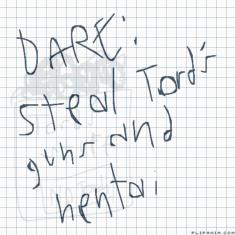 DARE:
steal Tord's
guns and
hentai
FLIPANIM.COM